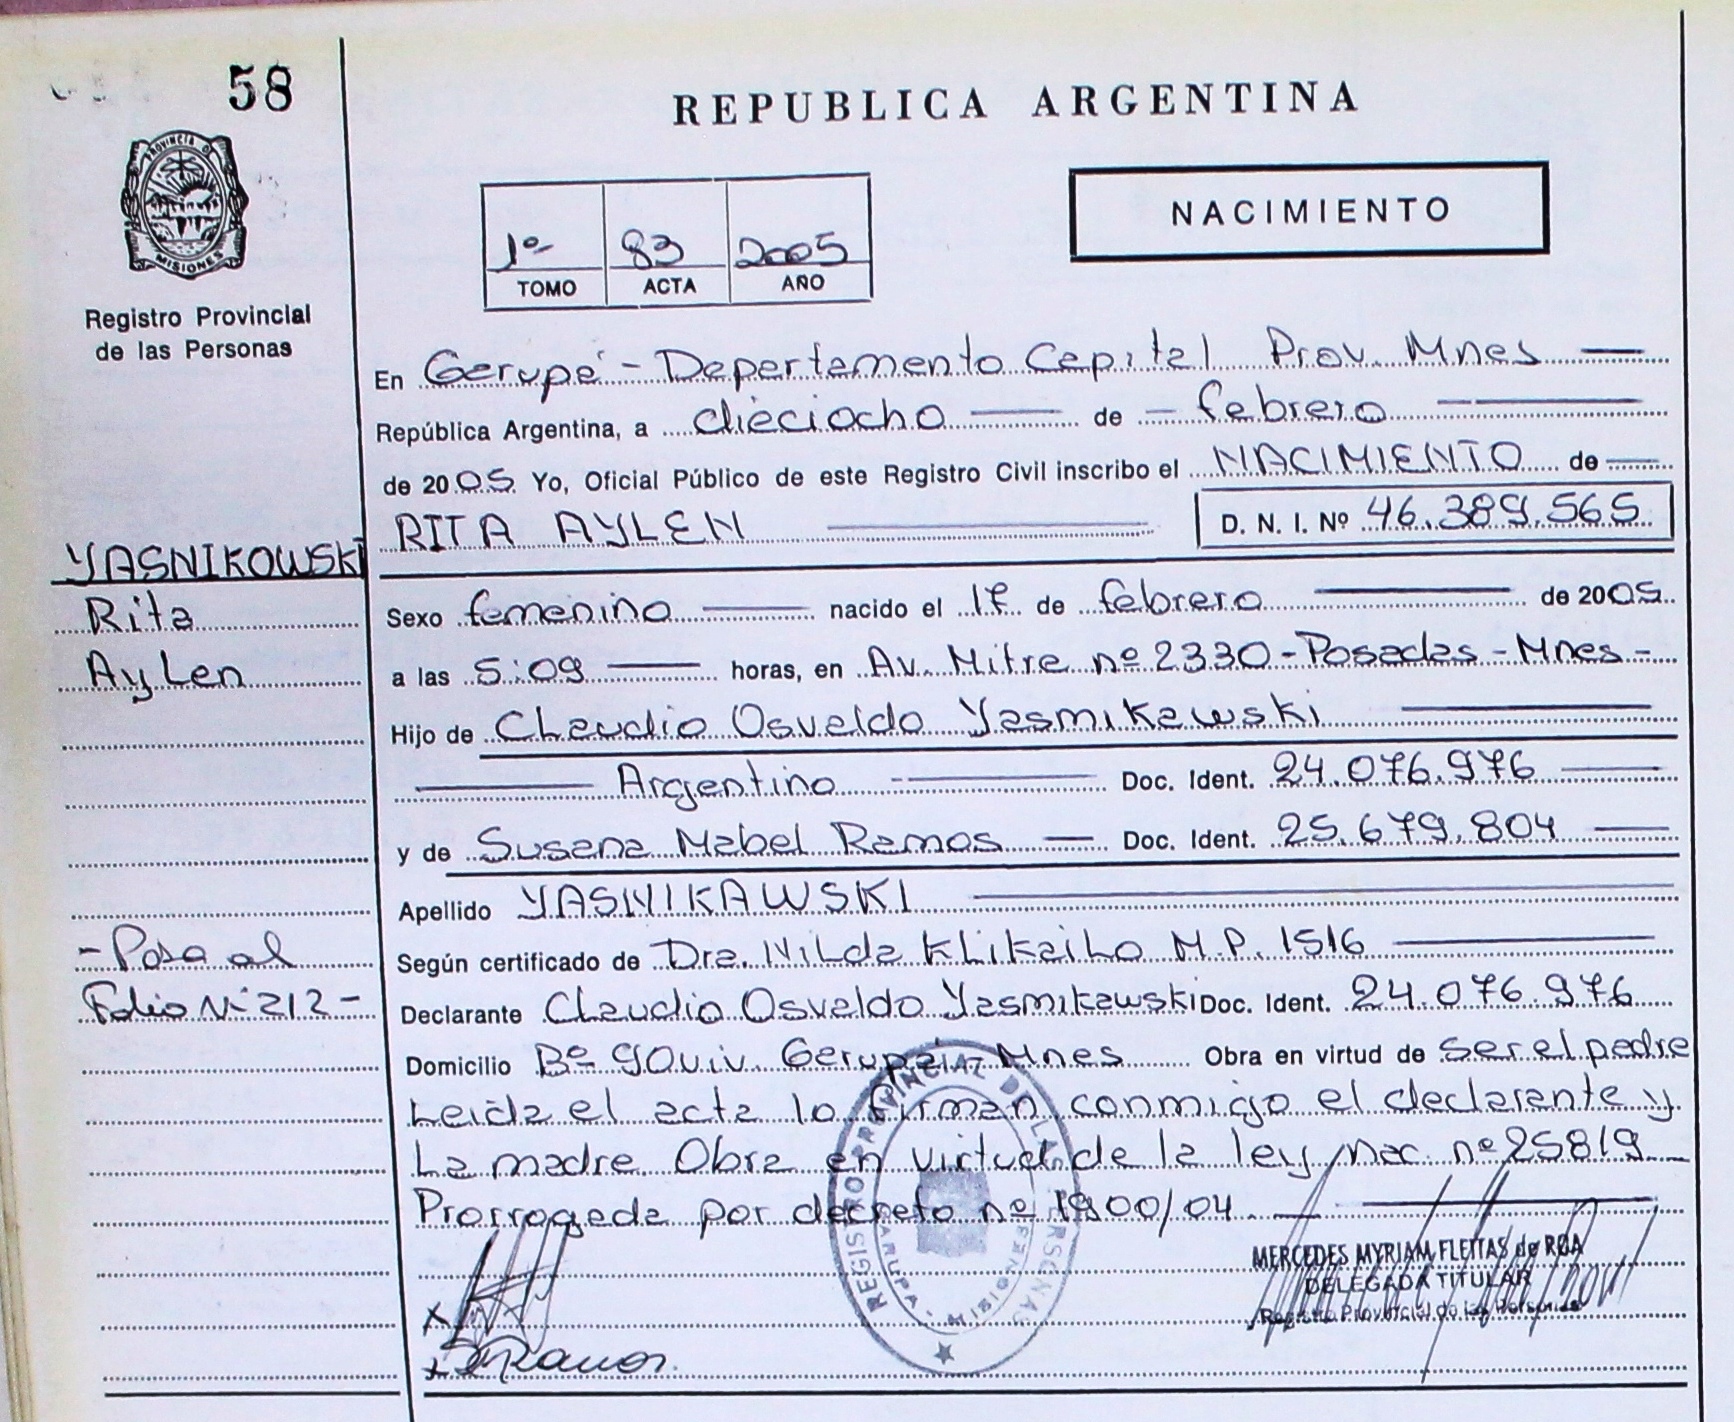 58
REPUBLICA ARGENTINA
PROVINCIA D
MISIONES
Registro Provincial
de las Personas
NACIMIENTO
1º 83 2005
TOMO ACTA AÑO
En Garupá - Departamento Capital Prov. Mnes
República Argentina, a dieciocho de febrero
de 2005 Yo, Oficial Público de este Registro Civil inscribo el NACIMIENTO de
RITA AYLEN D. N. I. Nº 46.389.565
YASNIKOWSKI
Rita
Aylen
Sexo femenino nacido el 17 de febrero de 2005
a las 5:09 horas, en Av. Mitre nº 2330 - Posadas - Mnes -
Hijo de Claudio Osvaldo Yasmikawski
Argentino Doc. Ident. 24.076.976
y de Susana Mabel Ramos Doc. Ident. 25.679.804
Apellido YASNIKAWSKI
- Pasa al
Folio Nº 212 -
Según certificado de Dra. Nilda Klikailo M.P. 1516
Declarante Claudio Osvaldo Yasmikawski Doc. Ident. 24.076.976
Domicilio Bº 90 viv. Garupá - Mnes Obra en virtud de ser el padre
Leida el acta lo firman conmigo el declarante y
La madre Obra en virtud de la ley Nac. nº 25819
Prorrogada por decreto nº 1900/04
REGISTRO PROVINCIAL DE LAS PERSONAS
GARUPA - MISIONES
MERCEDES MYRIAM FLEITAS de ROA
DELEGADA TITULAR
Registro Provincial de las Personas
x
x Ramos.